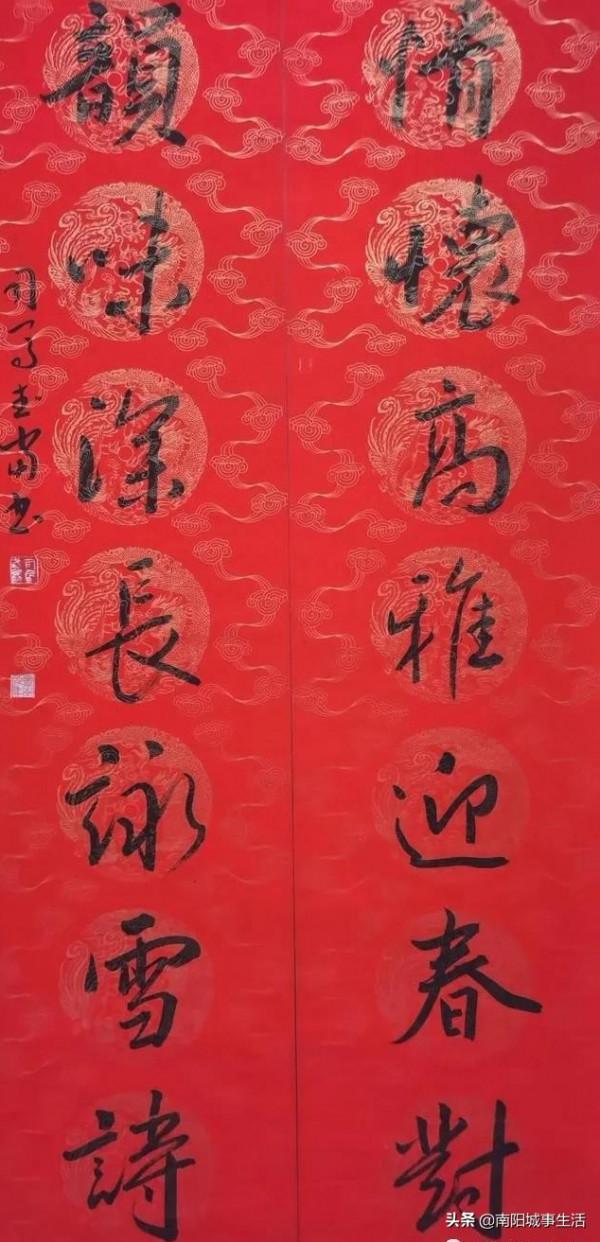 情懷高雅迎春對
韻味深長詠雪詩
头条 @南阳城事生活